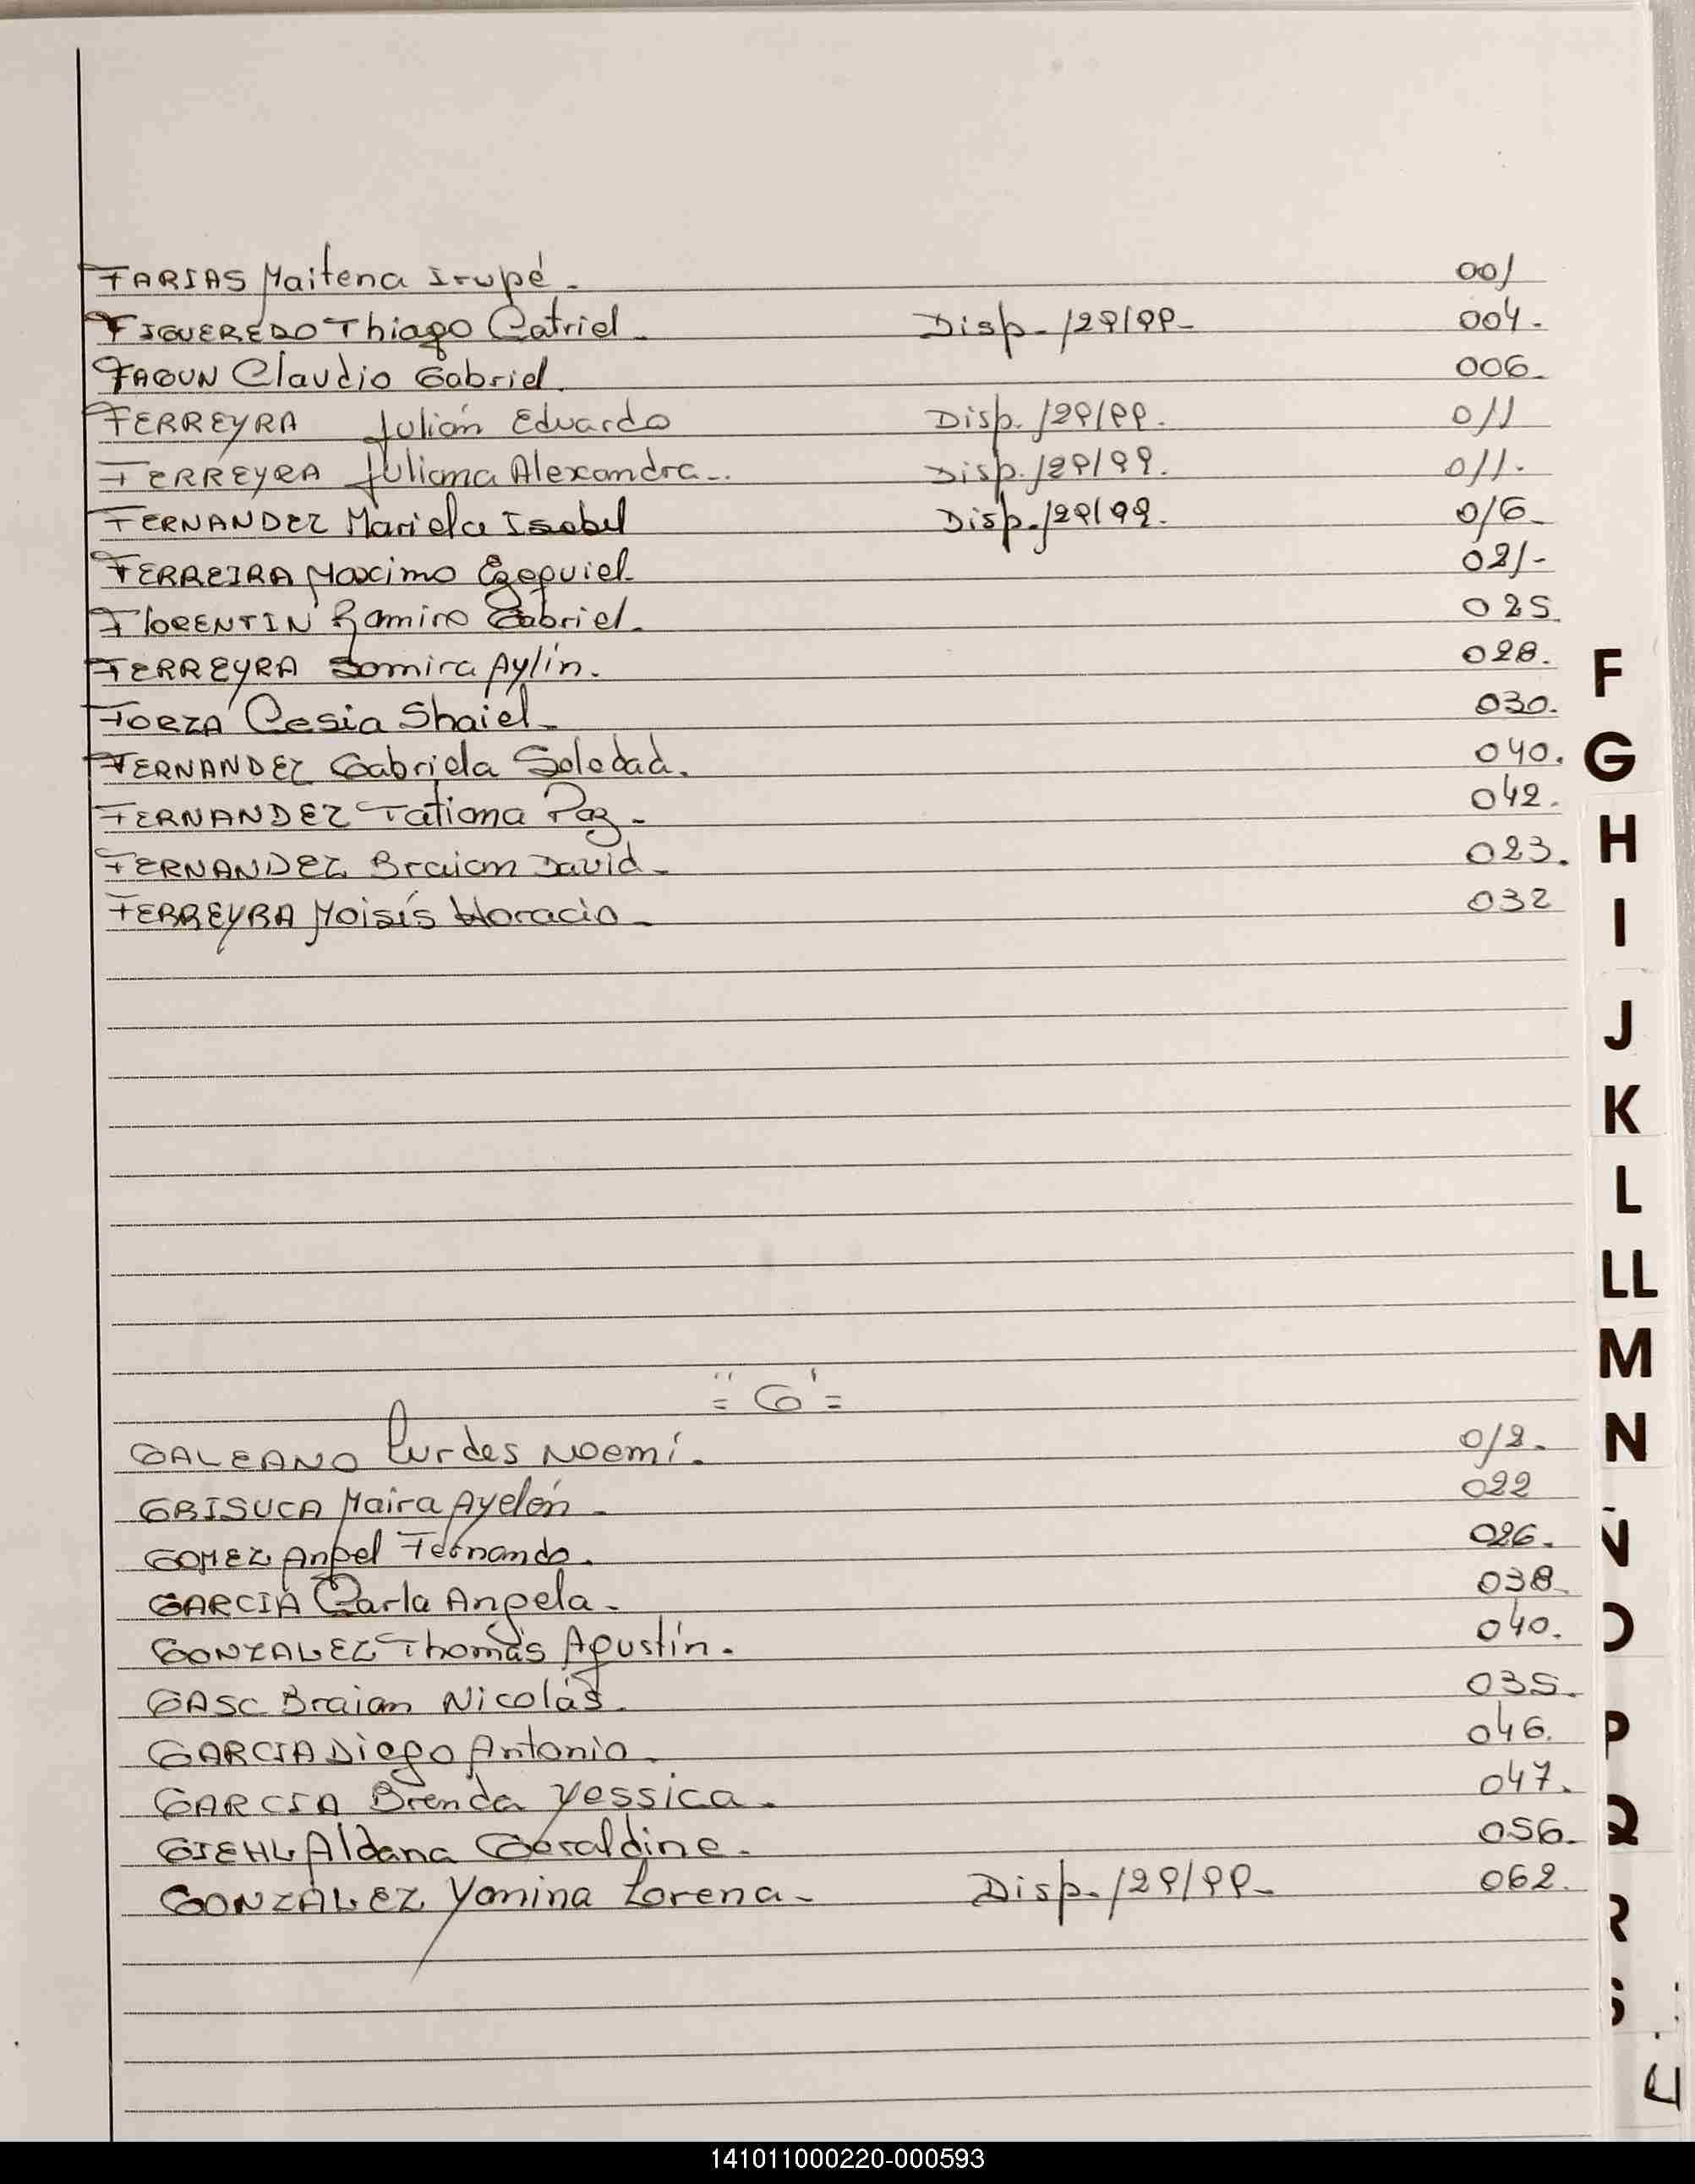 FARIAS Maitena Irupé. 001
FIGUEREDO Thiago Catriel. Disp. 129/99. 004.
FAGUN Claudio Gabriel. 006.
FERREYRA Julián Eduardo Disp. 129/99. 011
FERREYRA Juliana Alexandra.. Disp. 129/99. 011.
FERNANDEZ Mariela Isabel Disp. 129/99. 016.
FERREIRA Maximo Ezequiel. 021.
FlORENTIN Ramiro Gabriel. 025.
FERREYRA Samira Aylín. 028.
FORZA Cesia Shaiel. 030.
FERNANDEZ Gabriela Soledad. 040.
FERNANDEZ Tatiana Paz. 042.
FERNANDEZ Braian David. 023.
FERREYRA Moisís Horacio. 032
="G"=
GALEANO Lurdes Noemí. 012.
GRISUCA Maira Ayelén. 022
GOMEZ Angel Fernando. 026.
GARCIA Carla Angela. 038.
GONZALEZ Thomás Agustín. 040.
GASC Braian Nicolás. 035.
GARCIA Diego Antonio. 046.
GARCIA Brenda Yessica. 047.
GIEHL Aldana Geraldine. 056.
GONZALEZ Yanina Lorena. Disp. 129/99. 062.
F
G
H
I
J
K
L
LL
M
N
Ñ
O
P
Q
R
S
141011000220-000593